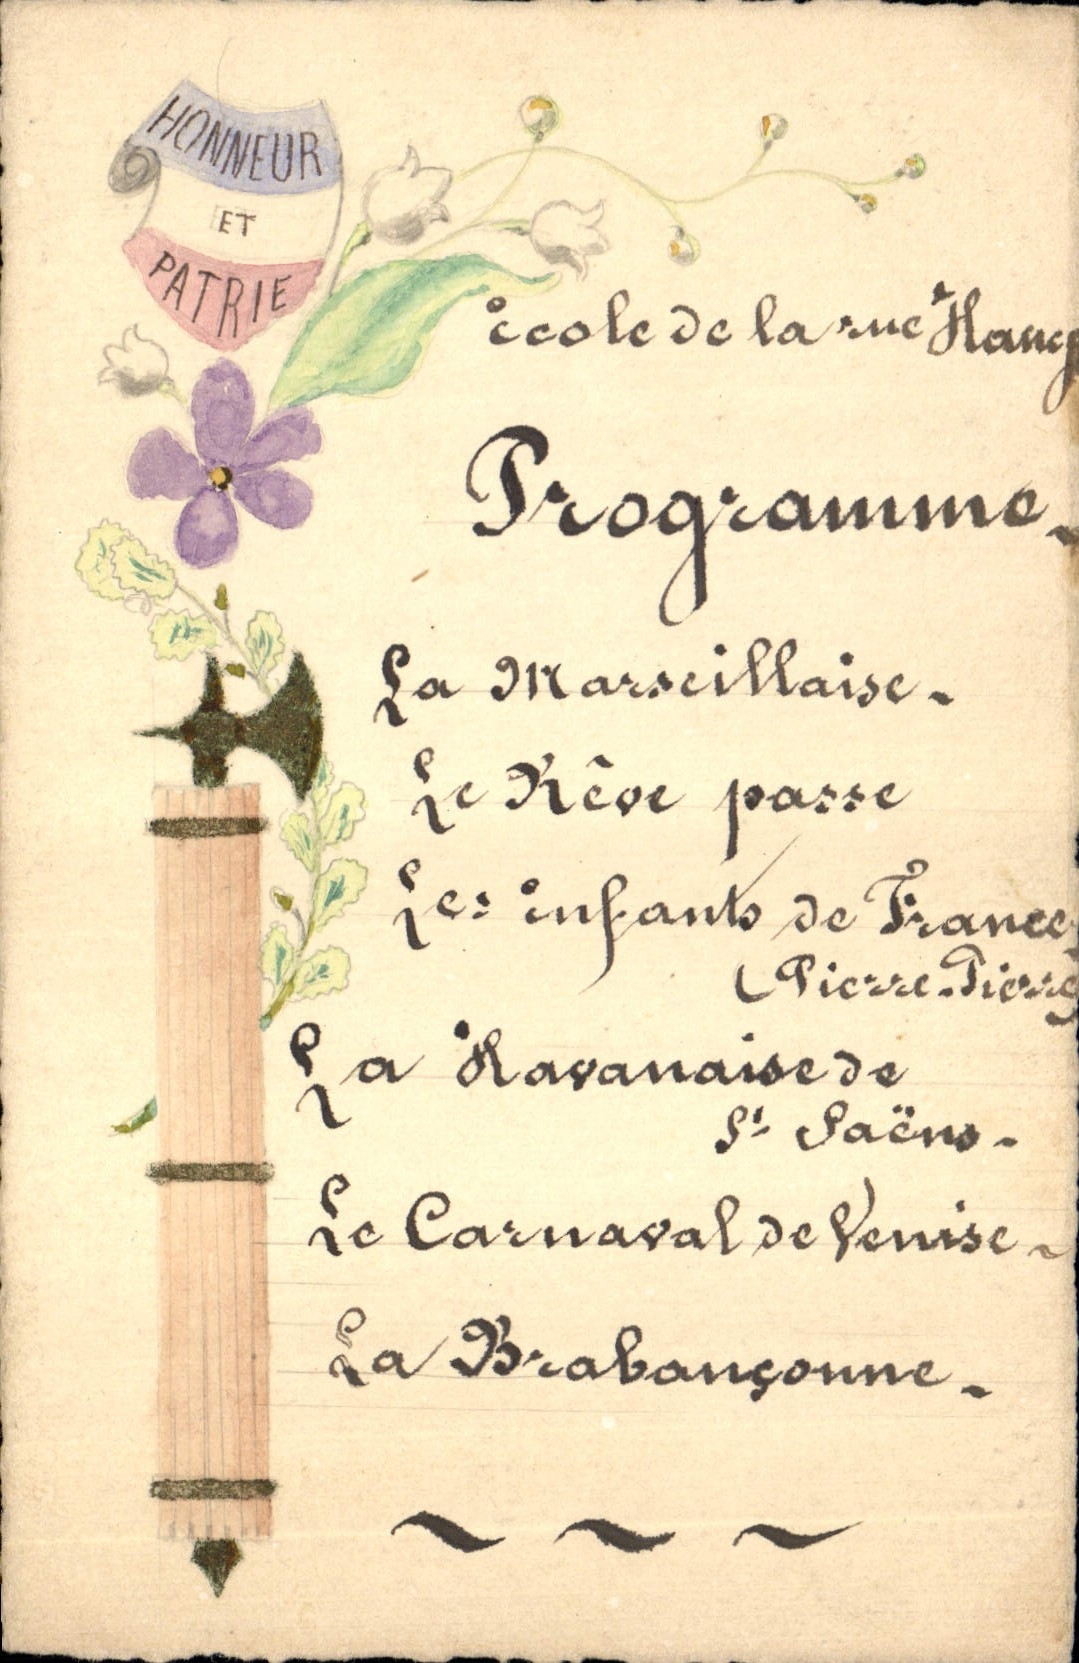 HONNEUR
ET
PATRIE
école de la rue
Programme.
La Marseillaise.
Le Rêve passe
Les infants de France
(Pierre-Pierre
La Havanaise de
St Saëns.
Le Carnaval de Venise.
La Brabançonne.